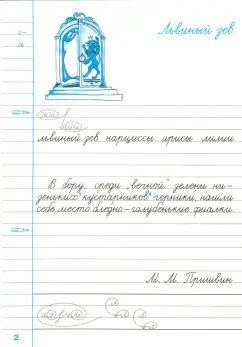 Львиный зев
г-
и
жи
ши
львиный зев нарциссы ирисы лилии
В бору, среди „вечной" зелени ни-
зеньких кустарников черники, нашли
себе место бледно-голубенькие фиалки.
М. М. Пришвин
2